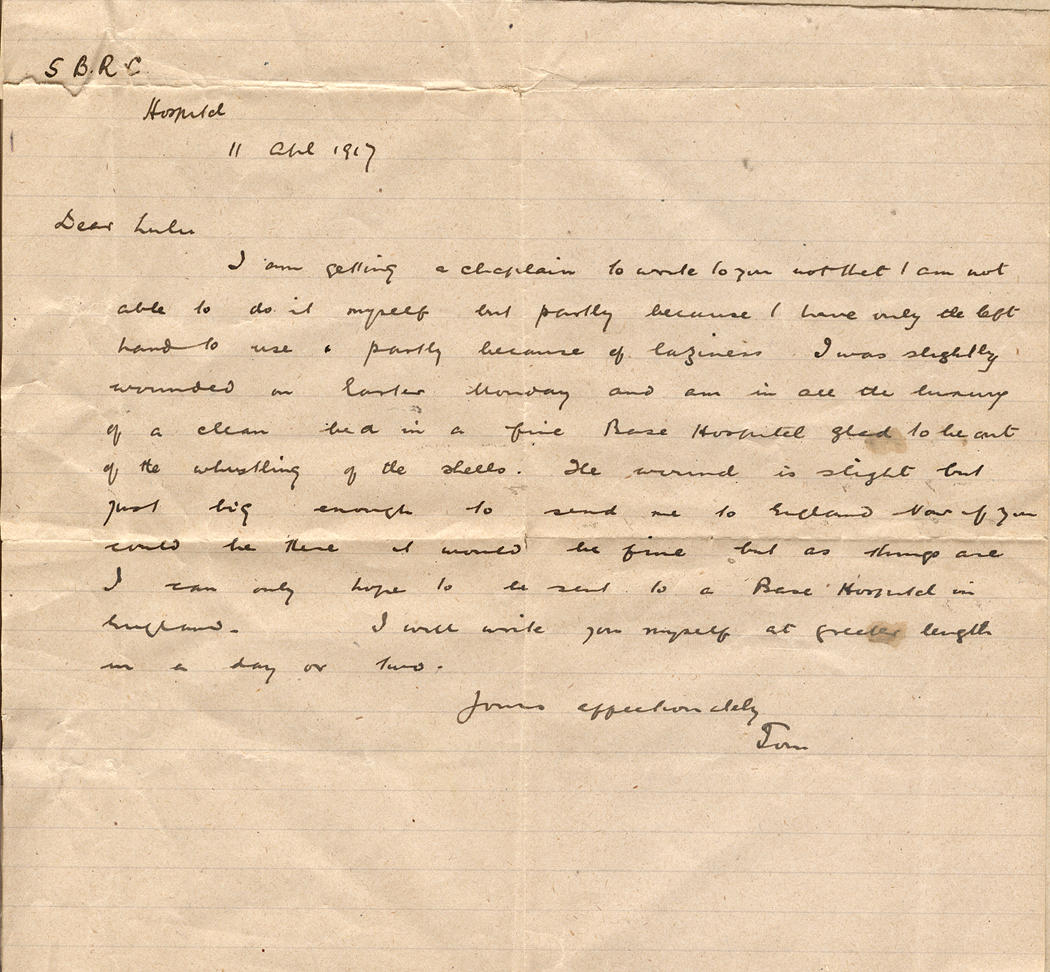 S B.R C
Hospital
11 Apl 1917
Dear Lulu
I am getting a chaplain to write to you not that I am not
able to do it myself but partly because I have only the left
hand to use & partly because of laziness I was slightly
wounded on Easter Monday and am in all the luxury
of a clean bed in a fine Base Hospital glad to be out
of the whistling of the shells. The wound is slight but
just big enough to send me to England Now if you
could be there it would be fine but as things are
I can only hope to be sent to a Base Hospital in
England. I will write you myself at greater length
in a day or two.
Yours affectionately
Tom